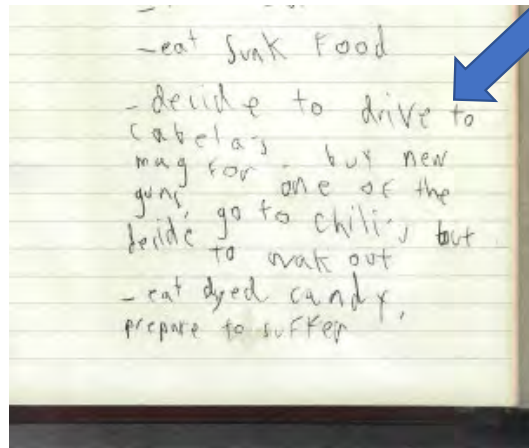 -eat Junk Food
-decide to drive to
Cabela's, buy new
mag for one of the
guns,
decide go to chili's, but
to walk out
-eat dyed candy,
prepare to suffer